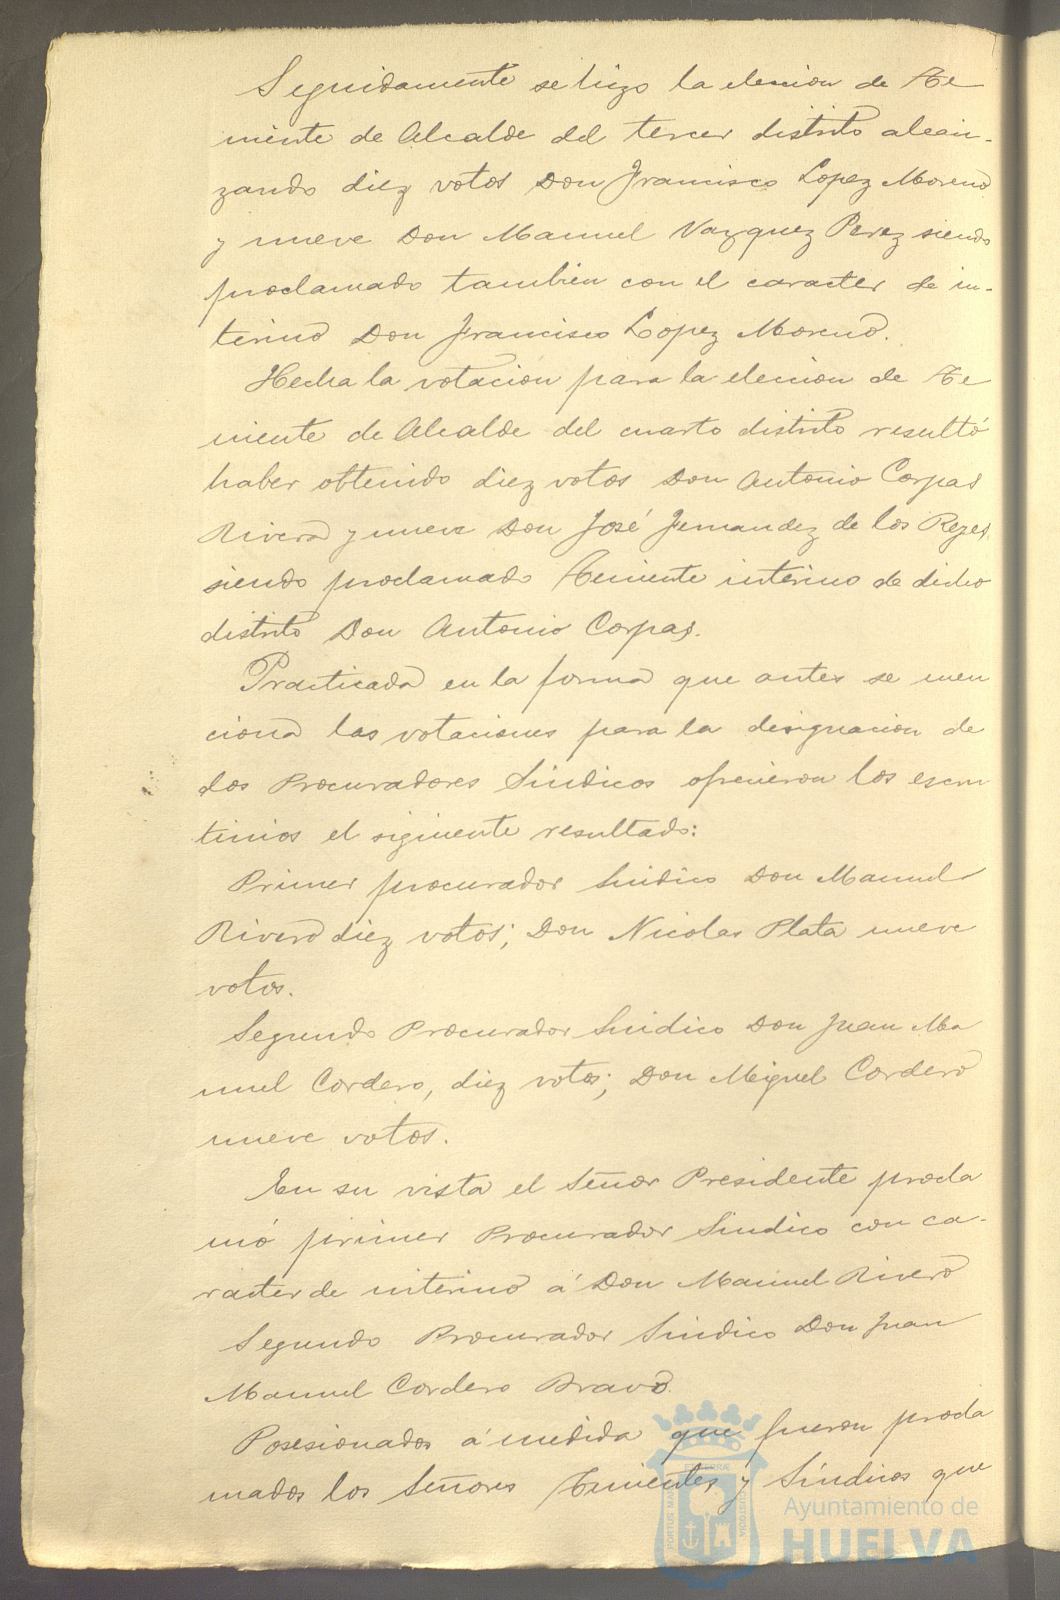 Seguidamente se hizo la eleccion de Te
niente de Alcalde del tercer distrito alcan-
zando diez votos Don Francisco Lopez Moreno
y nueve Don Manuel Vazquez Perez siendo
proclamado tambien con el caracter de in-
terino Don Francisco Lopez Moreno.
Hecha la votacion para la eleccion de Te
niente de Alcalde del cuarto distrito resultó
haber obtenido diez votos Don Antonio Corpas
Rivera y nueve Don José Fernandez de los Reyes,
siendo proclamado Teniente interino de dicho
distrito Don Antonio Corpas.
Practicada en la forma que antes se men
ciona las votaciones para la designacion de
dos Procuradores Sindicos ofrecieron los escru
tinios el siguiente resultado:
Primer procurador Sindico Don Manuel
Rivero diez votos; Don Nicolas Plata nueve
votos.
Segundo Procurador Sindico Don Juan Ma
nuel Cordero, diez votos; Don Miguel Cordero
nueve votos.
En su vista el Señor Presidente procla
mó primer Procurador Sindico con ca-
racter de interino á Don Manuel Rivero
Segundo Procurador Sindico Don Juan
Manuel Cordero Bravo.
Posesionados á medida que fueron procla
mados los Señores Tenientes y Síndicos que
Ayuntamiento de
HUELVA